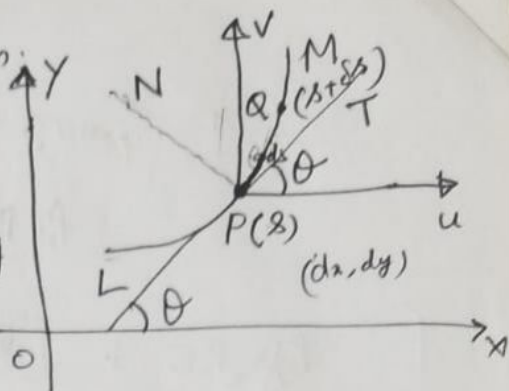 Y
N
V
M
Q (s+δs)
T
ds
θ
P(s)
u
(dx, dy)
L
θ
O
X